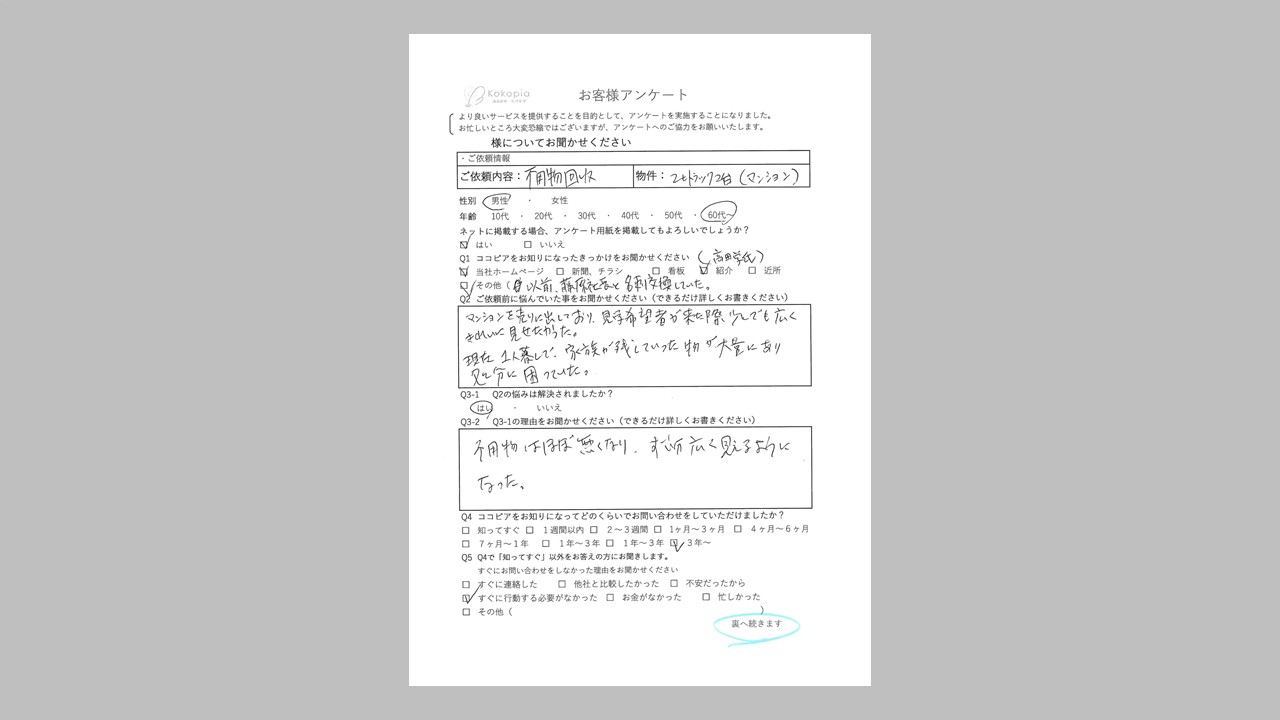 Kokopia
お客様アンケート
より良いサービスを提供することを目的として、アンケートを実施することになりました。
お忙しいところ大変恐縮ではございますが、アンケートへのご協力をお願いいたします。
様についてお聞かせください
・ご依頼情報
ご依頼内容：不用物回収 物件：2tトラック2台（マンション）
性別 男性 ・ 女性
年齢 10代 ・ 20代 ・ 30代 ・ 40代 ・ 50代 ・ 60代〜
ネットに掲載する場合、アンケート用紙を掲載してもよろしいでしょうか？
☑ はい □ いいえ
Q1 ココピアをお知りになったきっかけをお聞かせください
☑ 当社ホームページ □ 新聞、チラシ □ 看板 ☑ 紹介 □ 近所
☑ その他（ 以前、藤原社長と名刺交換していた。
Q2 ご依頼前に悩んでいた事をお聞かせください（できるだけ詳しくお書きください）
マンションを売りに出しており、見学希望者が来た際少しでも広く
きれいに見せたかった。
現在1人暮しで、家族が残していった物が大量にあり
処分に困っていた。
Q3-1 Q2の悩みは解決されましたか？
はい ・ いいえ
Q3-2 Q3-1の理由をお聞かせください（できるだけ詳しくお書きください）
不用物はほぼ無くなり、ずい分広く見えるように
なった。
Q4 ココピアをお知りになってどのくらいでお問い合わせをしていただけましたか？
□ 知ってすぐ □ １週間以内 □ ２〜３週間 □ 1ヶ月〜３ヶ月 □ ４ヶ月〜６ヶ月
□ ７ヶ月〜１年 □ １年〜３年 □ １年〜３年 ☑ ３年〜
Q5 Q4で「知ってすぐ」以外をお答えの方にお聞きします。
すぐにお問い合わせをしなかった理由をお聞かせください
□ すぐに連絡した □ 他社と比較したかった □ 不安だったから
☑ すぐに行動する必要がなかった □ お金がなかった □ 忙しかった
□ その他（ ）
裏へ続きます